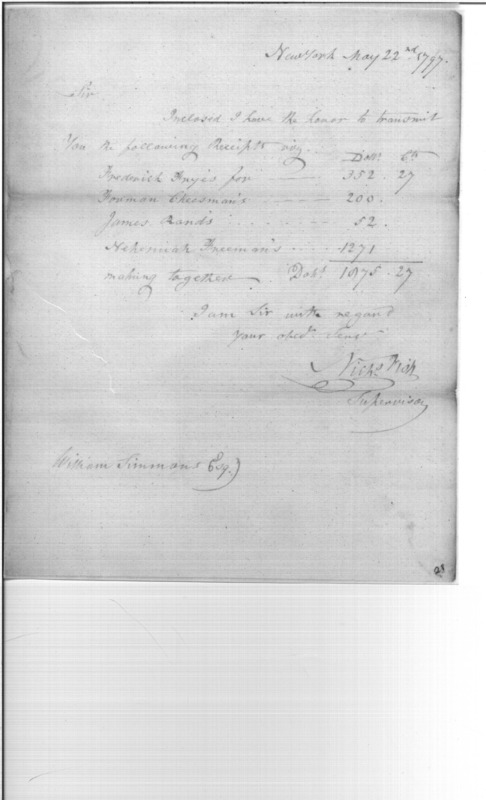 New York May 22nd 1797.
Sir
Inclosed I have the honor to transmit
You the following Receipts viz.
Dolls Cts
Frederick Frye's for 352. 27
Forman Cheesman's 200.
James Rand's 52.
Nehemiah Freeman's 1271
making together Dolls 1875. 27
I am Sir with regard
your obedt Servt
Nichs Fish
Supervisor
William Simmons Esq.